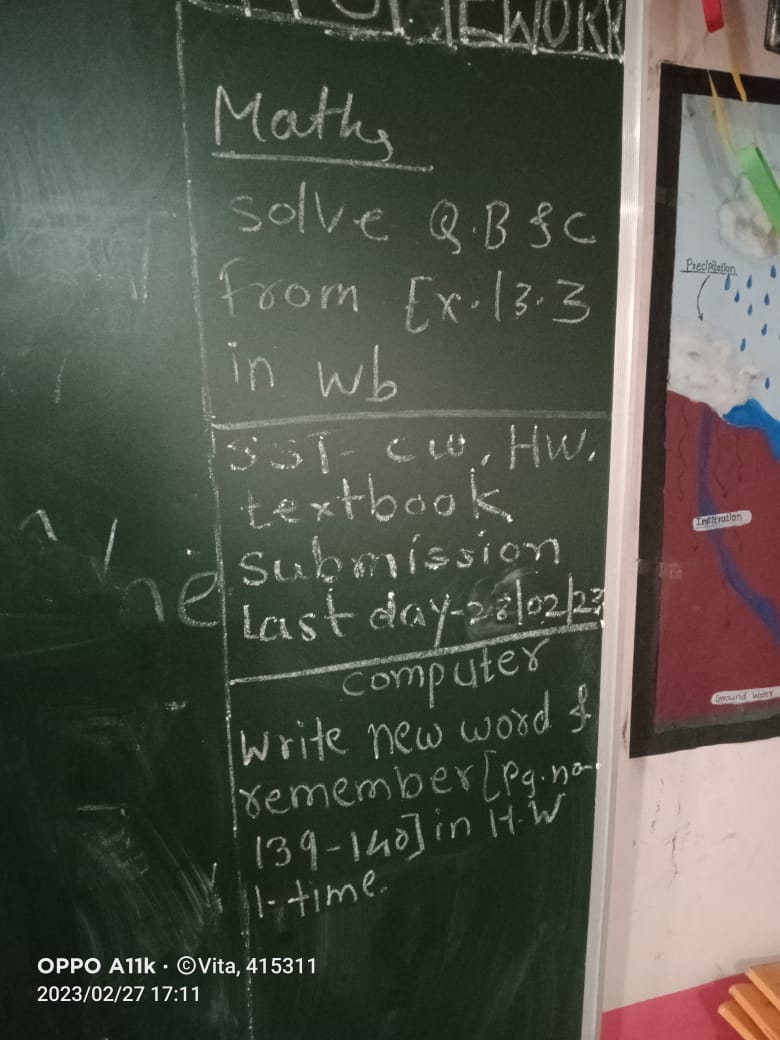 HOMEWORK
Maths
solve Q.B & C
from Ex.13.3
in Wb
SST- CW, HW,
textbook
submission
Last day-28/02/23
computer
Write new word &
remember [Pg.no-
139-140] in H.W
1-time.
he
Precipitation
Infiltration
Ground Water
OPPO A11k · ©Vita, 415311
2023/02/27 17:11